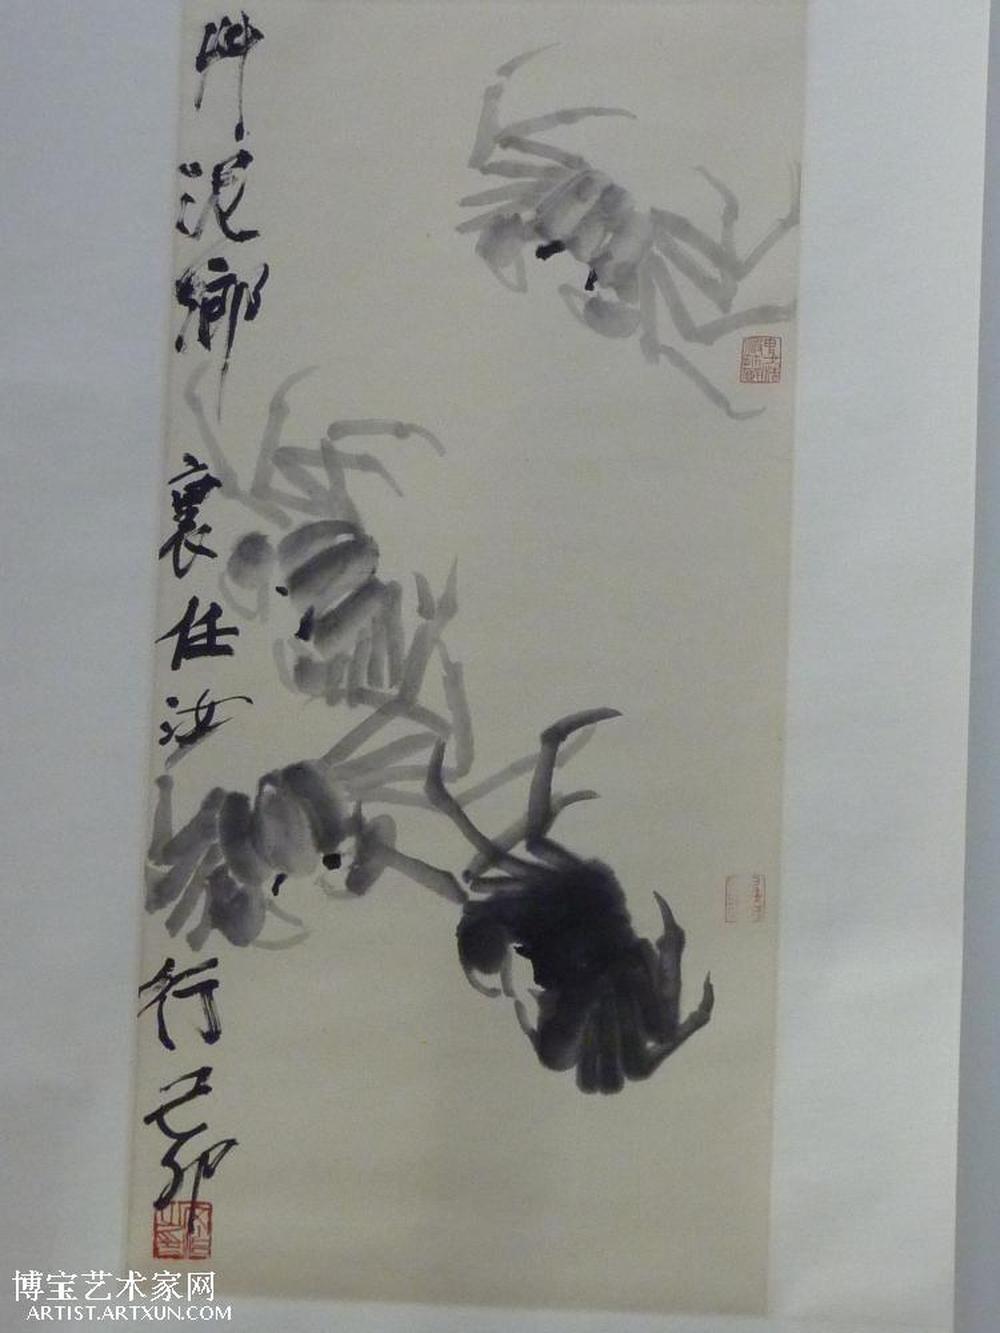 艸泥鄉裏任汝行己卯
博宝艺术家网
ARTIST.ARTXUN.COM